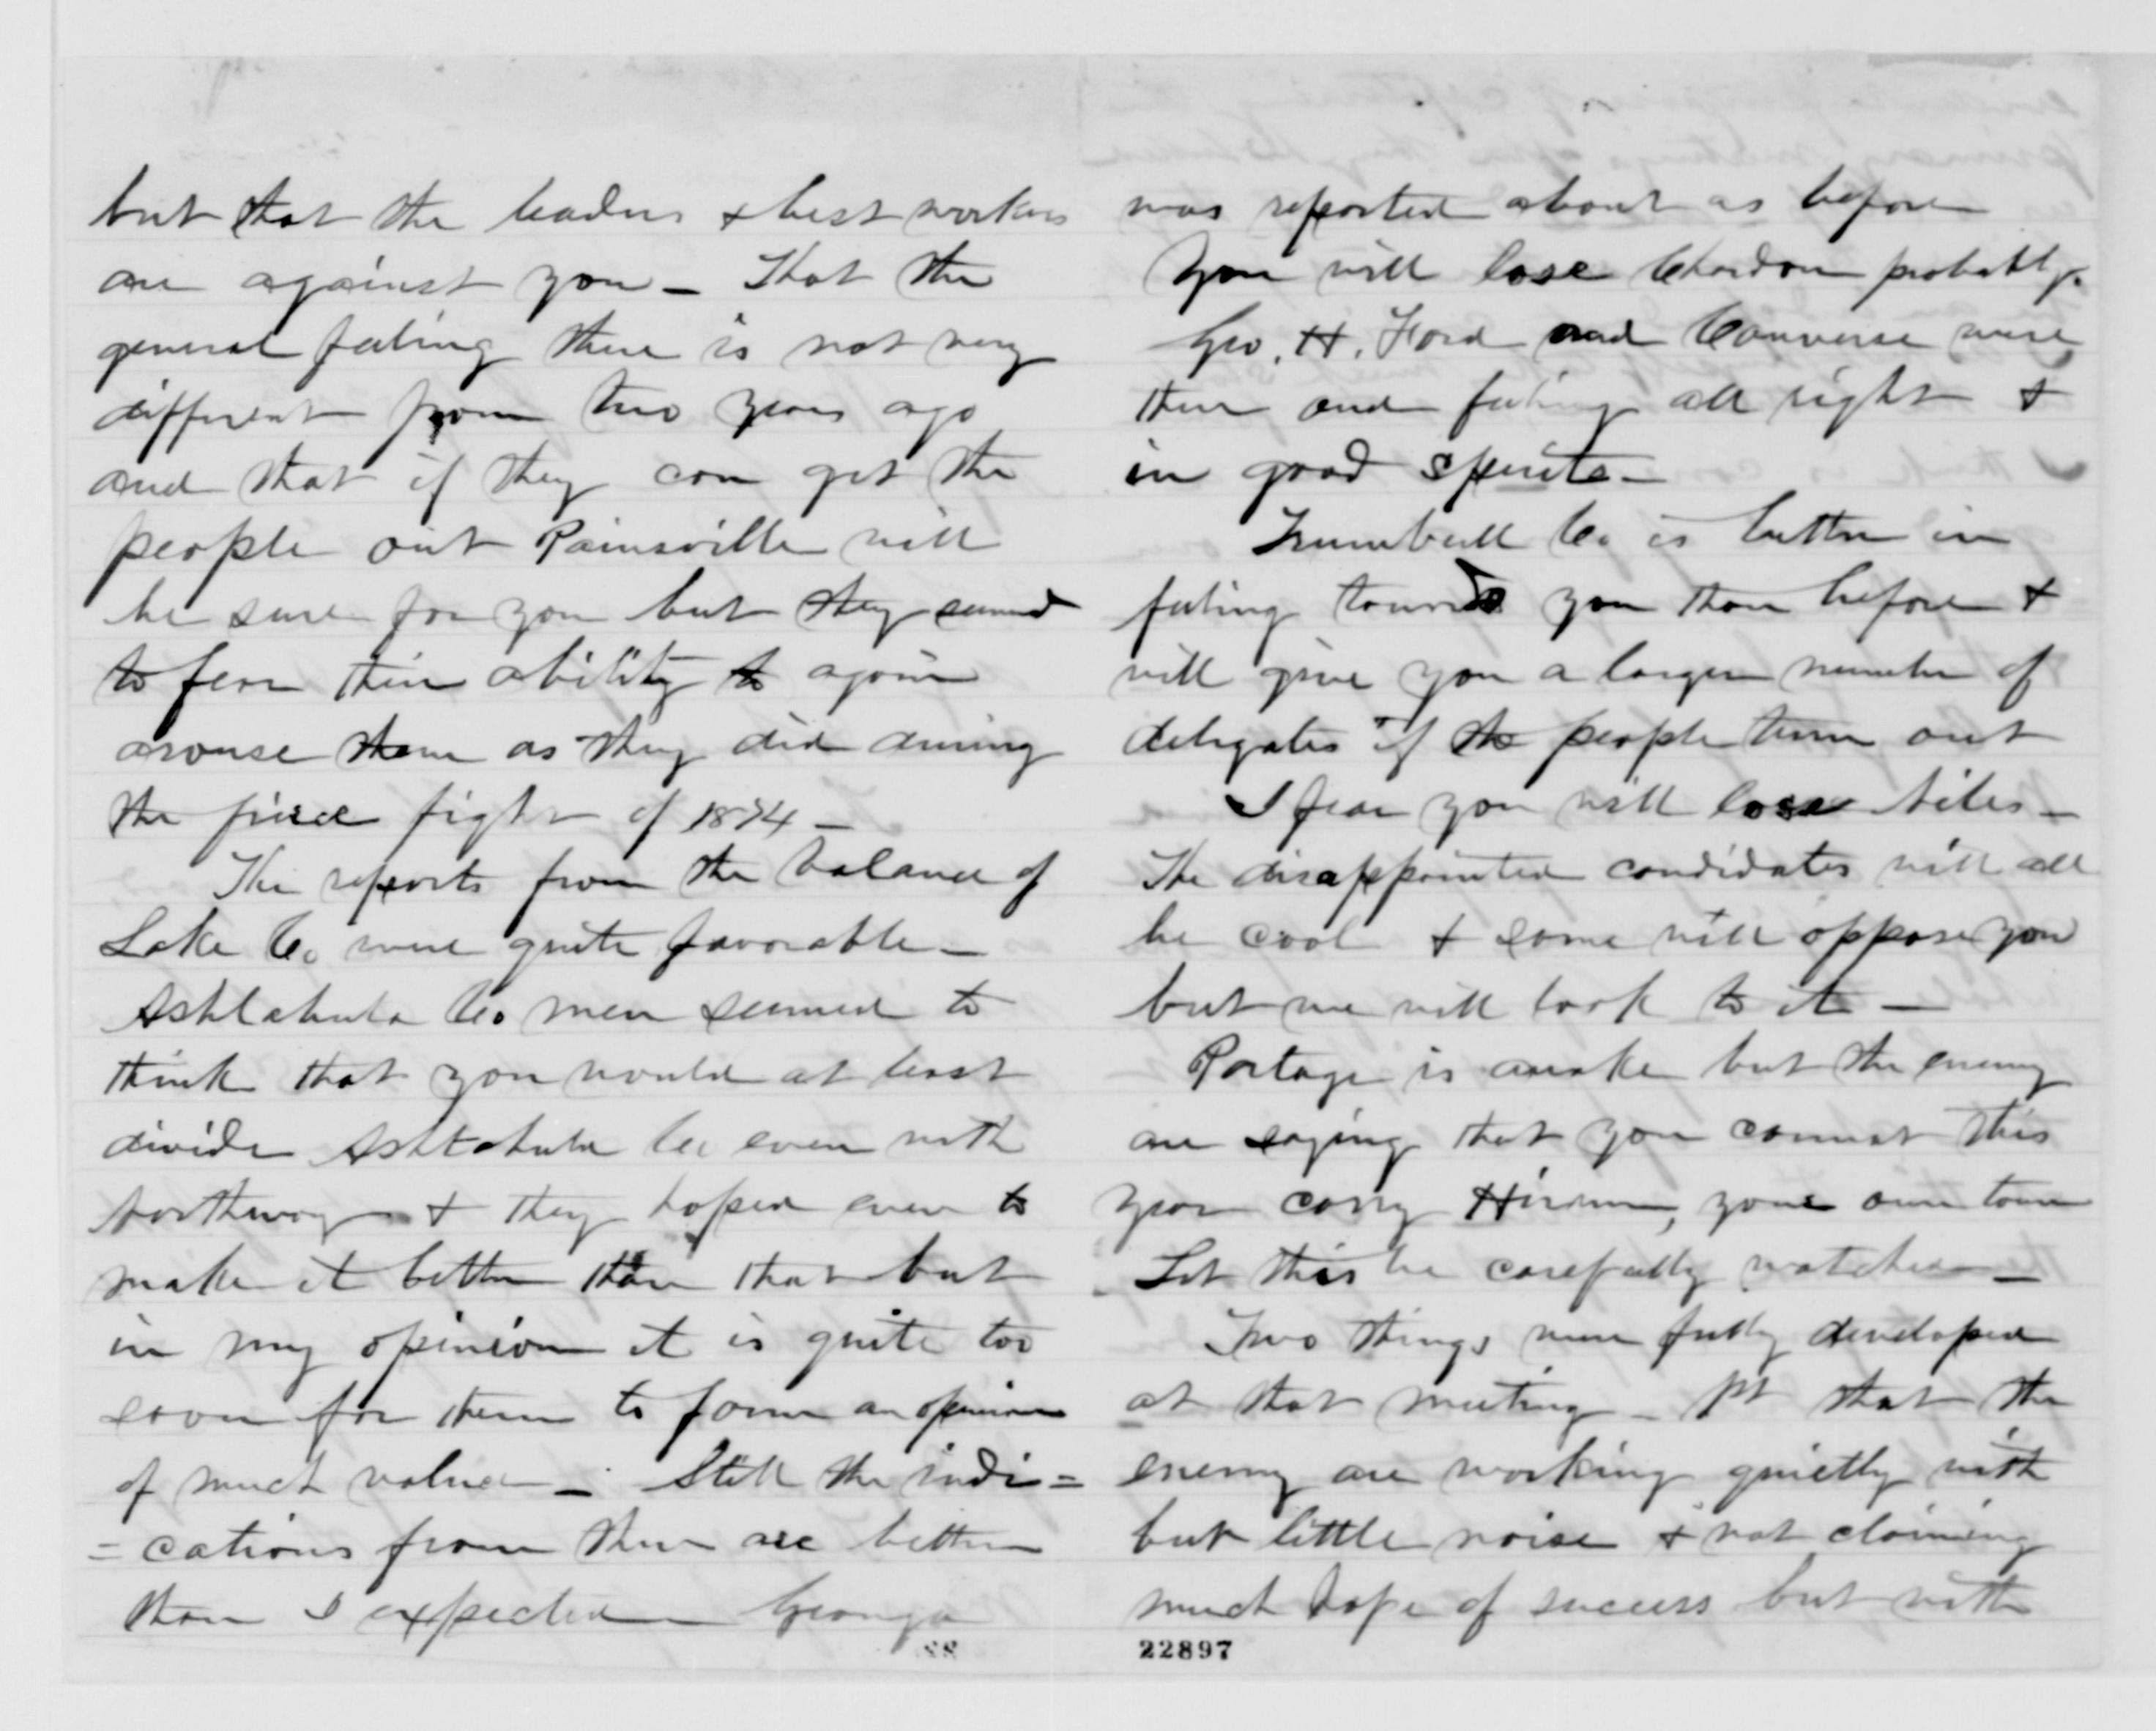 but that the leaders & best workers
are against you – That the
general feeling there is not very
different from two years ago
and that if they can get the
people out Painsville will
be sure for you but they seemed
to fear their ability to again
arouse them as they did during
the fierce fight of 1874 –
The reports from the balance of
Lake Co were quite favorable –
Ashtabula Co men seemed to
think that you would at least
divide Ashtabula Co even with
Northway & they hoped even to
make it better than that but
in my opinion it is quite too
soon for them to form an opinion
of much value – Still the indi=
=cations from there are better
than I expected – Geauga
88
was reported about as before
You will lose Chardon probably.
Geo. H. Ford and Converse were
there and feeling all right &
in good spirits –
Trumbull Co is better in
feeling towards you than before &
will give you a larger number of
delegates if the people turn out
I fear you will lose Niles –
The disappointed candidates will all
be cool & some will oppose you
but we will look to it –
Portage is awake but the enemy
are saying that you cannot this
year carry Hiram, your own town
Let this be carefully watched –
Two things were fully developed
at that meeting – 1st that the
enemy are working quietly with
but little noise & not claiming
much hope of success but with
22897